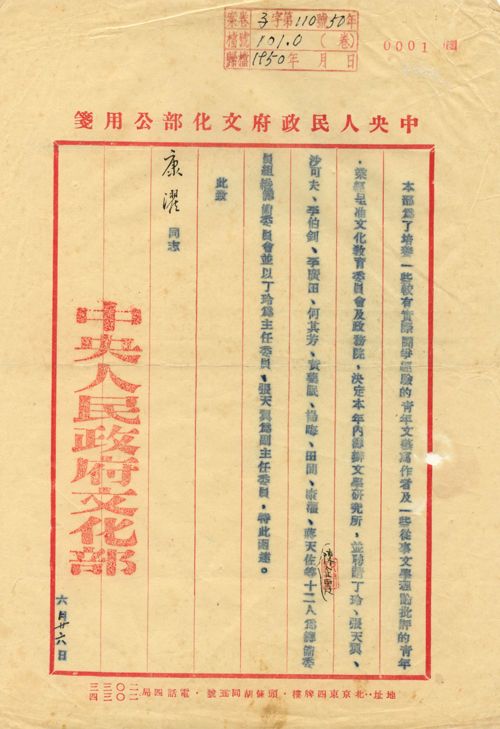 案卷 字第110號50年
檔號 101.0 （卷）
歸檔 1950年 月 日
0001
中央人民政府文化部公用箋
本部為了培養一些較有實際鬥爭經驗的青年文藝寫作者及一些從事文學理論批評的青年
，業經呈准文化教育委員會及政務院，決定本年內籌辦文學研究所，並聘請丁玲、張天翼、
沙可夫、李伯釗、李廣田、何其芳、黃藥眠、楊晦、田間、康濯、蔣天佐等十二人為籌備委
陳企霞
員組織籌備委員會並以丁玲為主任委員、張天翼為副主任委員，特此通達。
此致
康濯 同志
中央人民政府文化部
六月廿六日
地址：北京東四牌樓·頭條胡同五號·電話四局